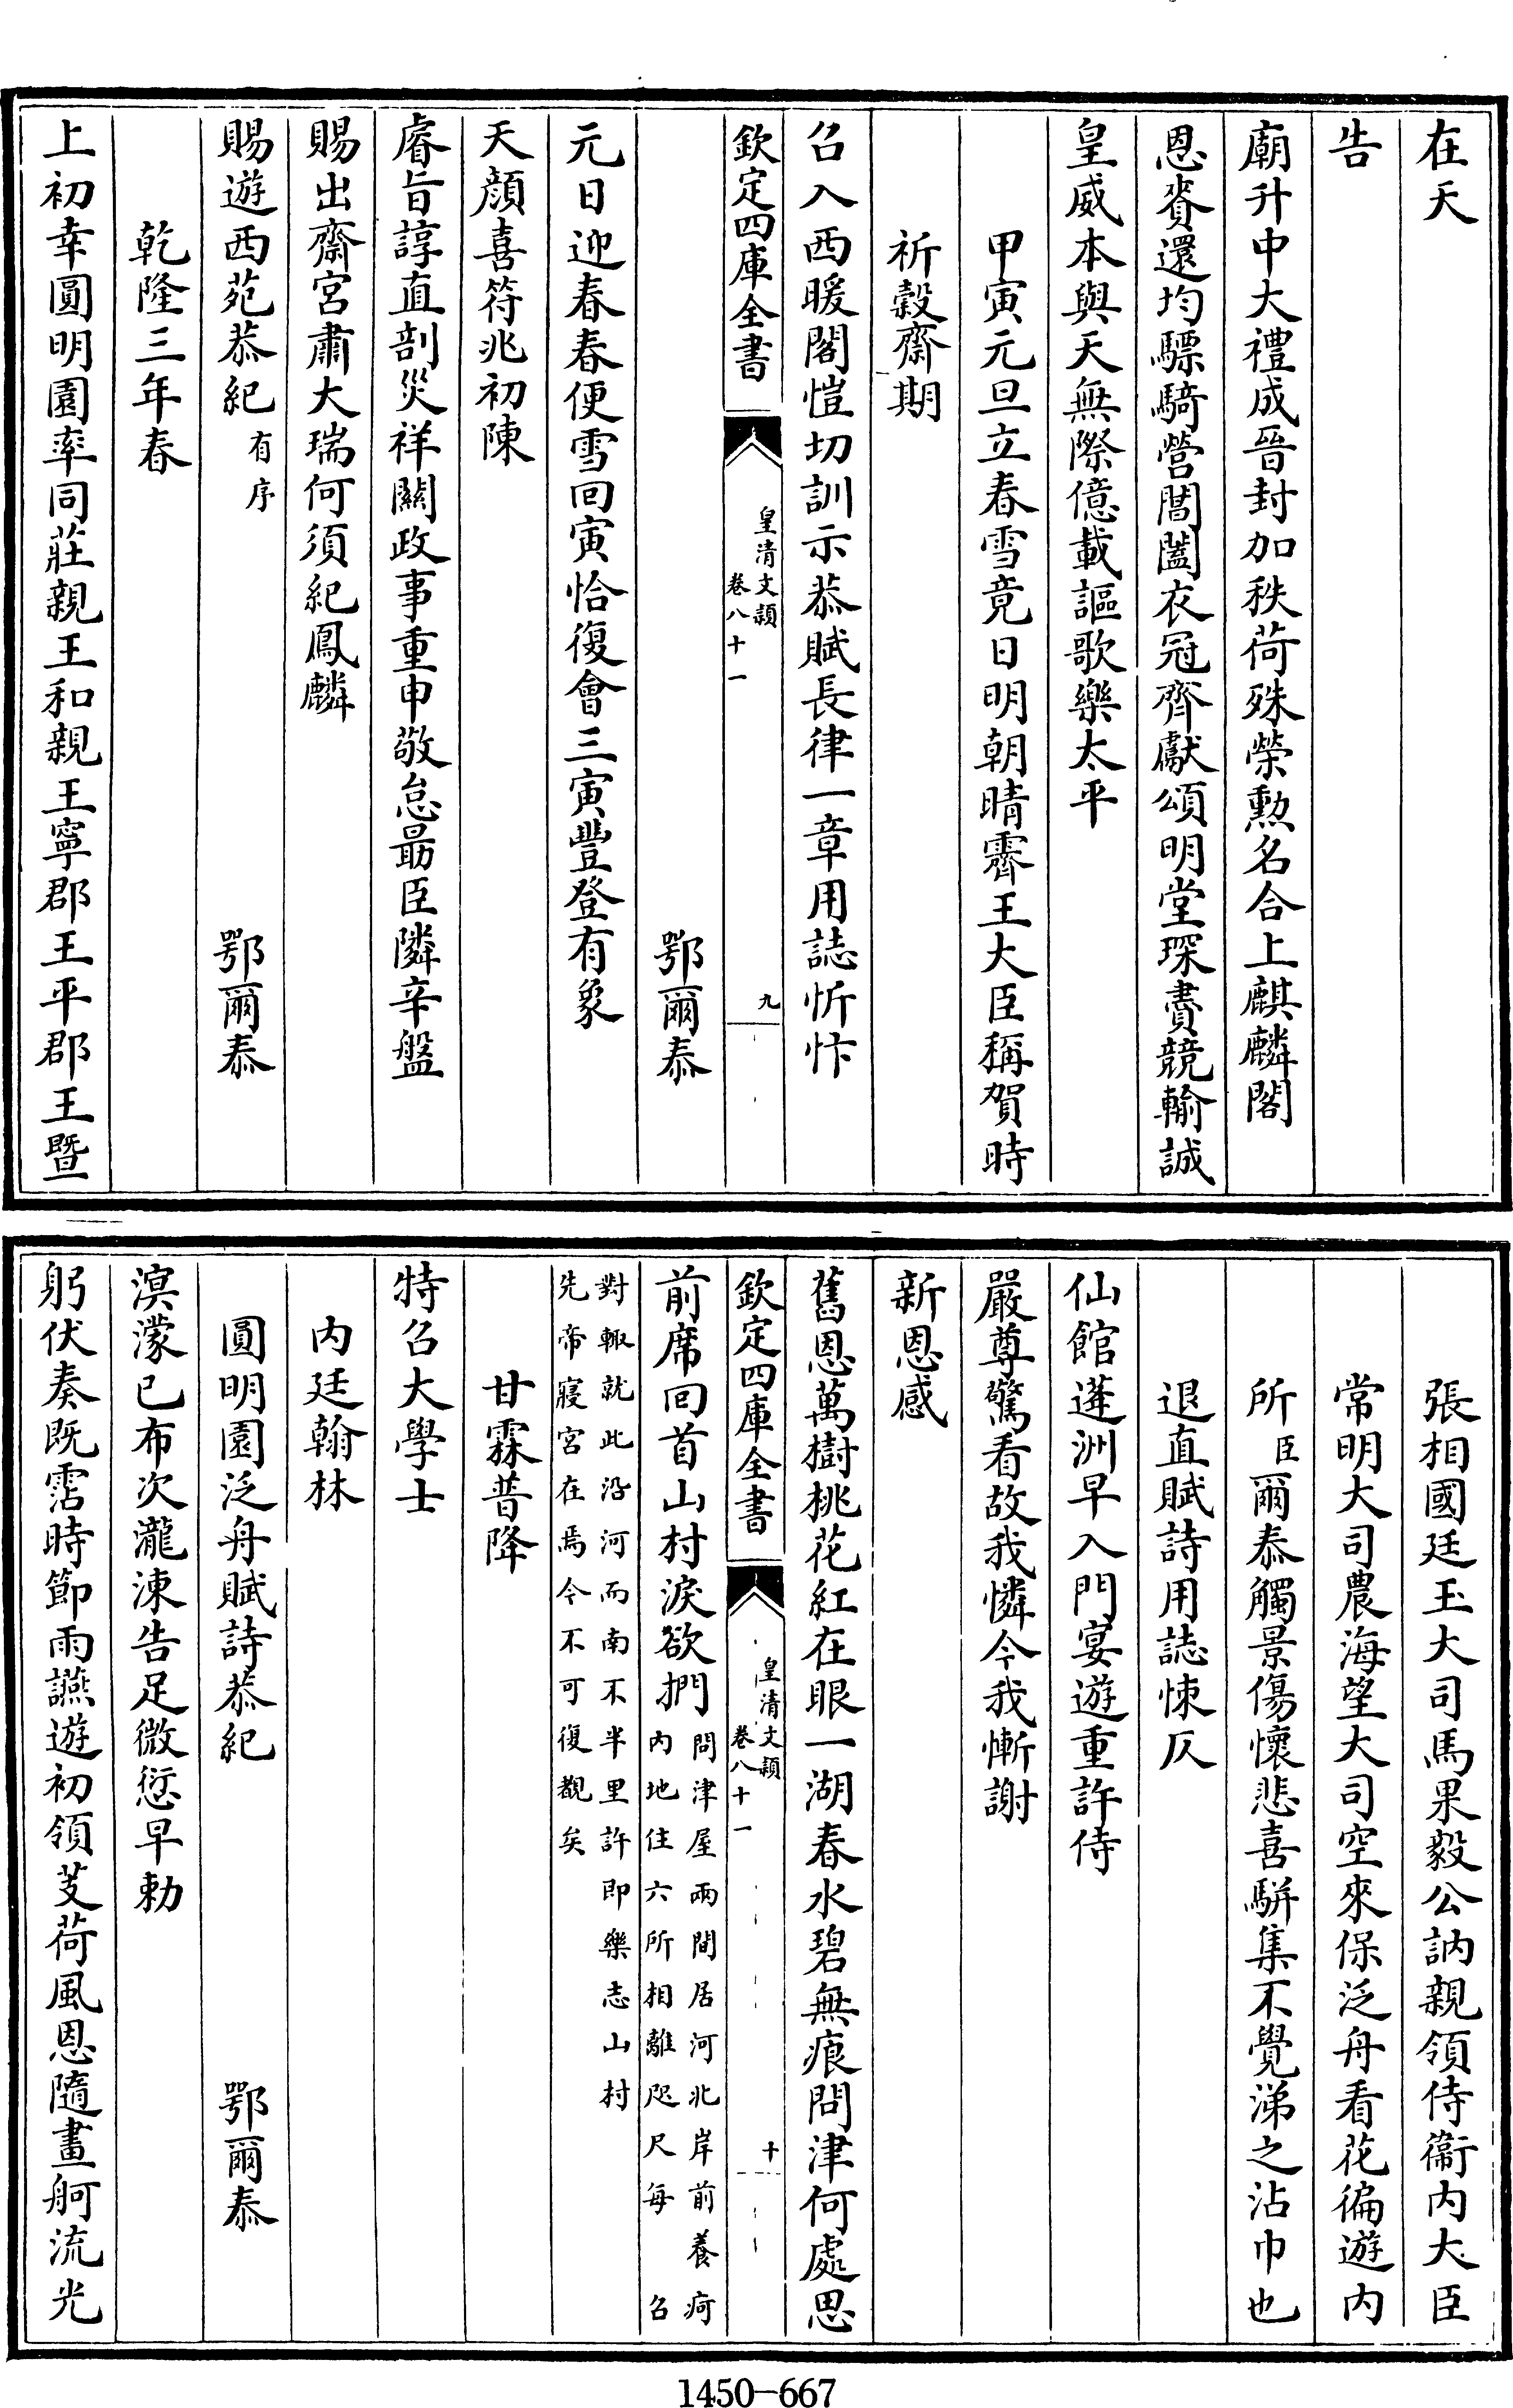 在天
告
廟升中大禮成晉封加秩荷殊榮勲名合上麒麟閣
恩賚還均驃騎營閶闔衣冠齊獻頌明堂琛賮競輸誠
皇威本與天無際億載謳歌樂太平
甲寅元旦立春雪竟日明朝晴霽王大臣稱賀時
祈穀齋期
召入西暖閣愷切訓示恭賦長律一章用誌忻忭
欽定四庫全書
皇清文穎
卷八十一
九
鄂爾泰
元日迎春春便雪回寅恰復會三寅豐登有象
天顔喜符兆初陳
睿旨諄直剖災祥關政事重申敬怠朂臣隣辛盤
賜出齋宮肅大瑞何須紀鳳麟
賜遊西苑恭紀有序
鄂爾泰
乾隆三年春
上初幸圓明園率同莊親王和親王寧郡王平郡王暨
張相國廷玉大司馬果毅公訥親領侍衞内大臣
常明大司農海望大司空來保泛舟看花徧遊内
所臣爾泰觸景傷懷悲喜駢集不覺涕之沾巾也
退直賦詩用誌悚仄
仙館蓬洲早入門宴遊重許侍
嚴尊驚看故我憐今我慚謝
新恩感
舊恩萬樹桃花紅在眼一湖春水碧無痕問津何處思
欽定四庫全書
皇清文穎
卷八十一
十
前席回首山村淚欲捫
問津屋兩間居河北岸前養疴
内地住六所相離咫尺每召
對輒就此沿河而南不半里許即樂志山村
先帝寢宮在焉今不可復觀矣
甘霖普降
特召大學士
内廷翰林
圓明園泛舟賦詩恭紀
鄂爾泰
溟濛已布次瀧涷告足微愆早勅
躬伏奏既霑時節雨讌遊初領芰荷風恩隨畫舸流光
1450-667